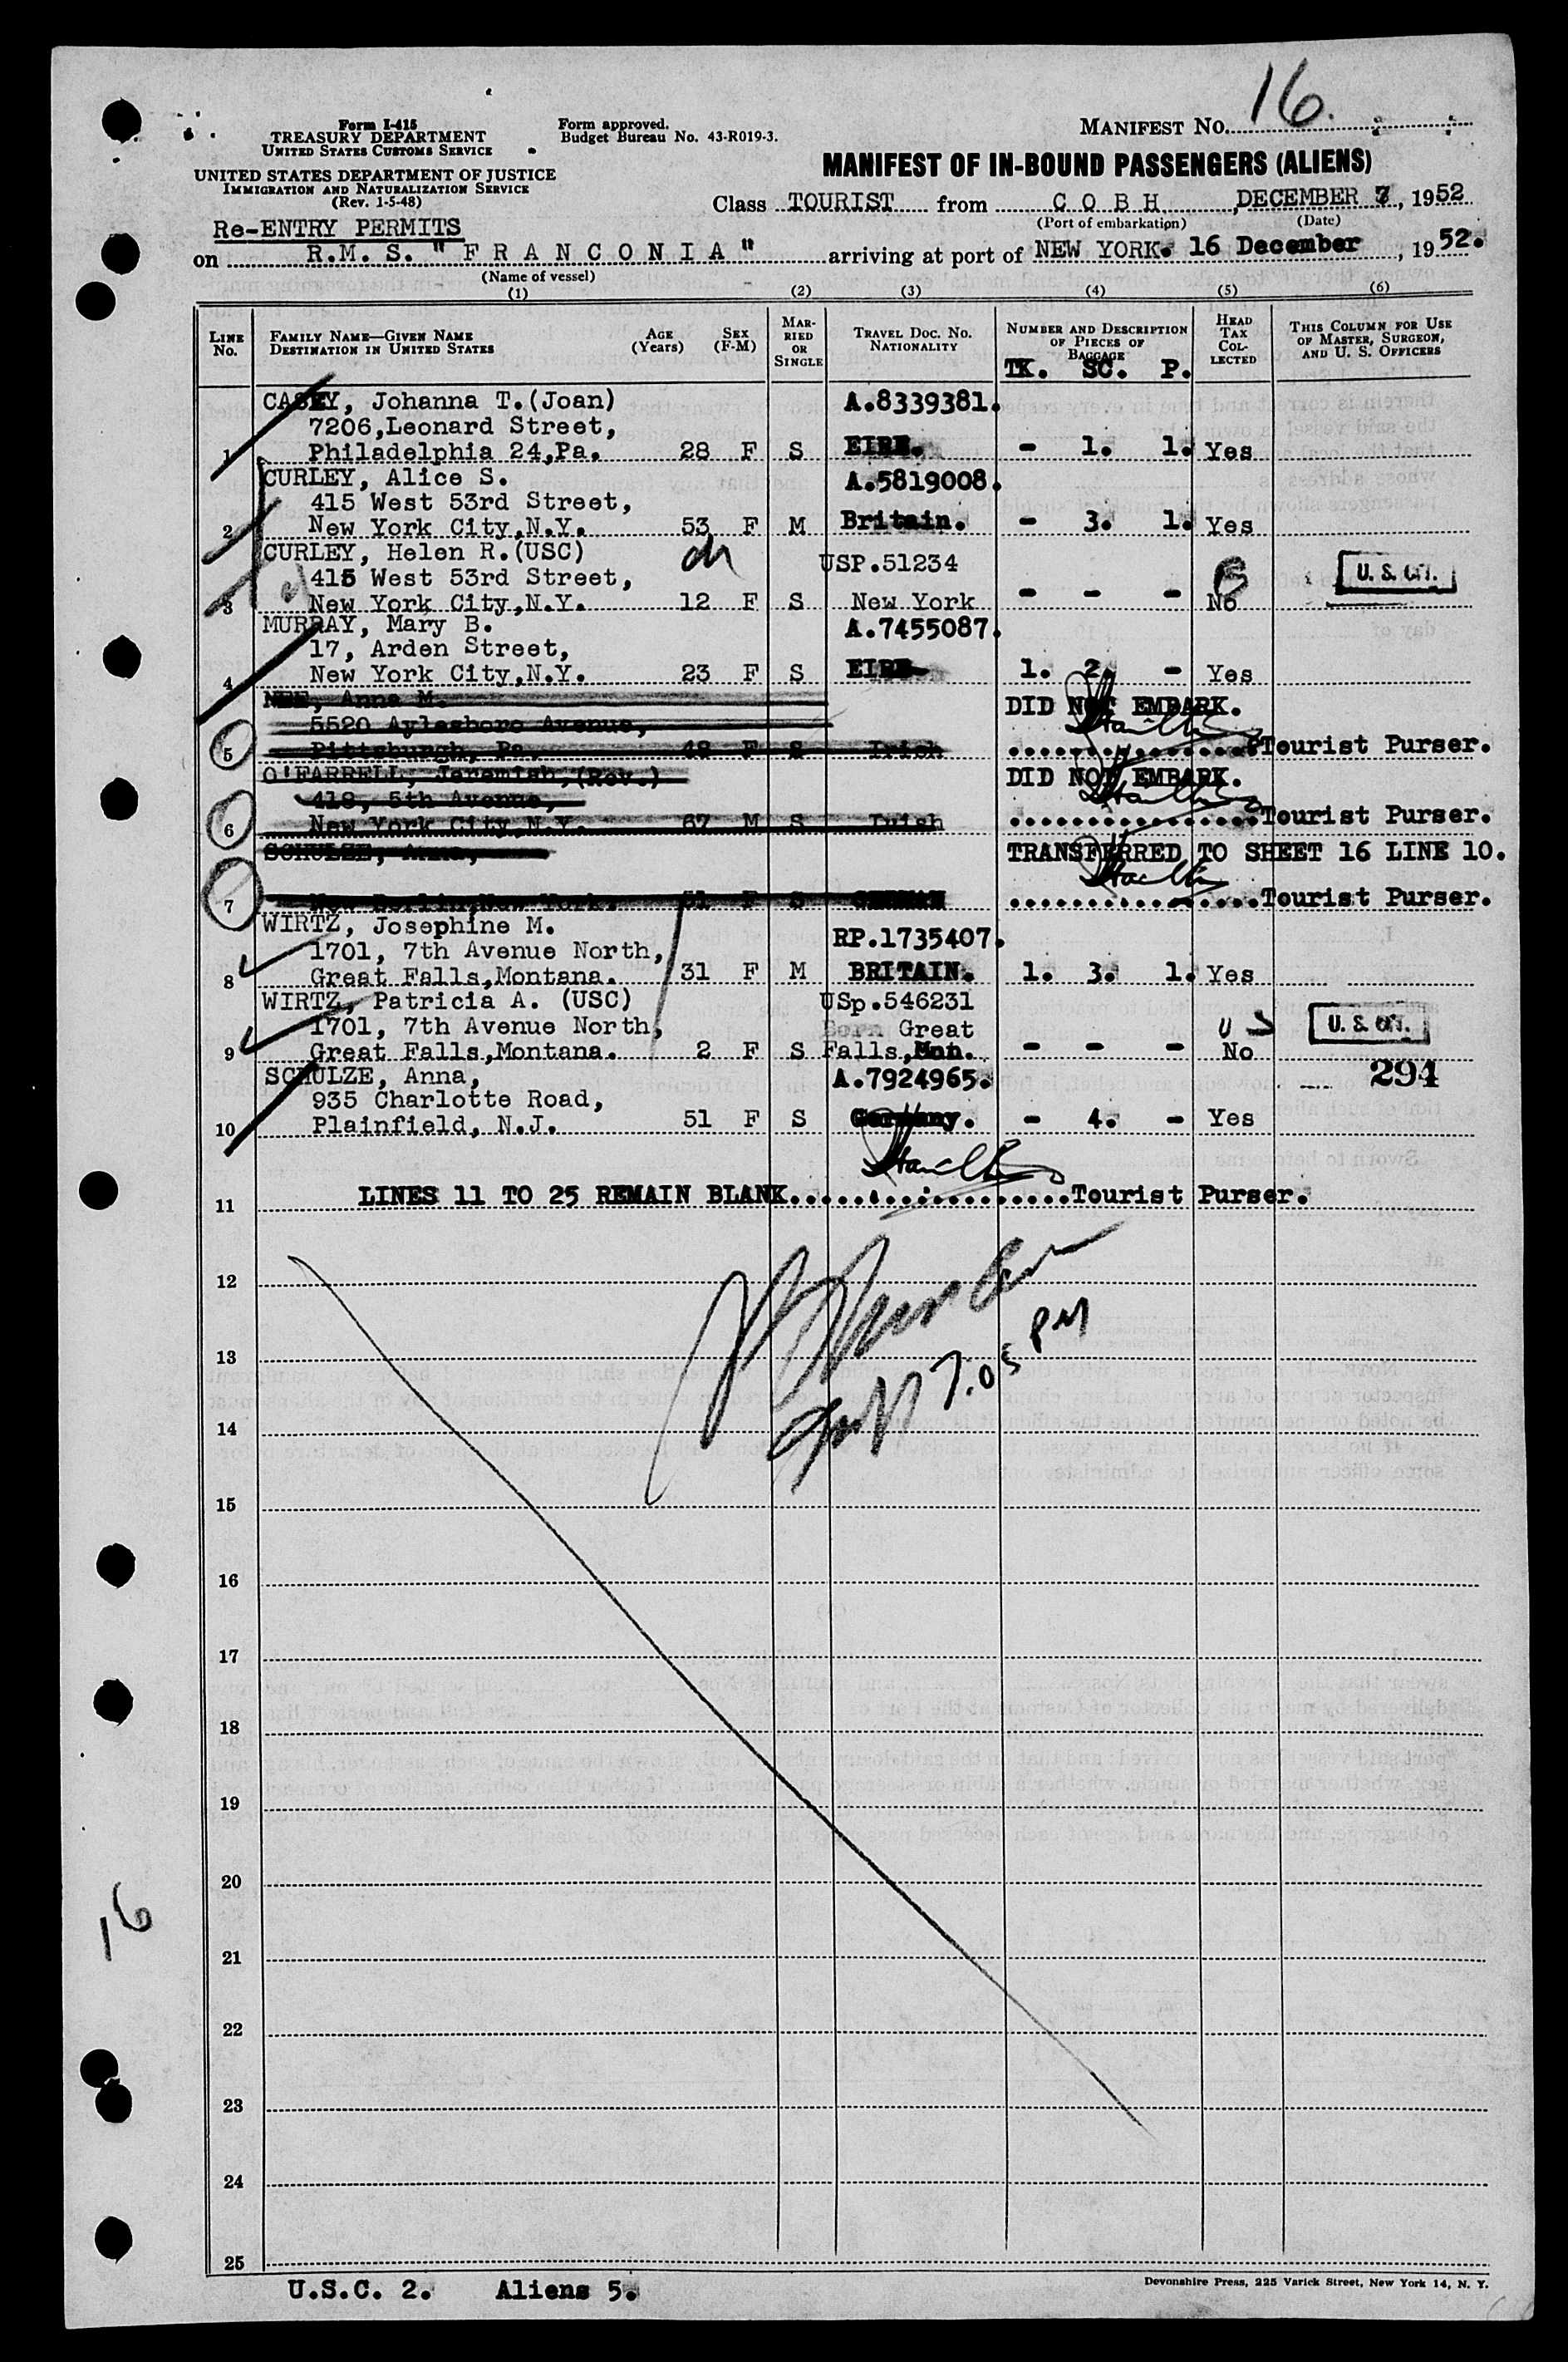 16.
Form I-415
TREASURY DEPARTMENT
UNITED STATES CUSTOMS SERVICE
Form approved.
Budget Bureau No. 43-R019-3.
MANIFEST NO.
UNITED STATES DEPARTMENT OF JUSTICE
IMMIGRATION AND NATURALIZATION SERVICE
(Rev. 1-5-48)
MANIFEST OF IN-BOUND PASSENGERS (ALIENS)
Class TOURIST from C O B H, DECEMBER 7, 1952
(Port of embarkation) (Date)
Re-ENTRY PERMITS
on R.M. S. " F R A N C O N I A " arriving at port of NEW YORK. 16 December, 1952.
(Name of vessel)
(1) (2) (3) (4) (5) (6)
LINE No. FAMILY NAME—GIVEN NAME DESTINATION IN UNITED STATES AGE (Years) SEX (F-M) MARRIED OR SINGLE TRAVEL DOC. NO. NATIONALITY NUMBER AND DESCRIPTION OF PIECES OF BAGGAGE HEAD TAX COLLECTED THIS COLUMN FOR USE OF MASTER, SURGEON, AND U. S. OFFICERS
TK. SC. P.
CASEY, Johanna T.(Joan) A.8339381.
7206,Leonard Street,
1 Philadelphia 24,Pa. 28 F S EIRE. - 1. 1. Yes
CURLEY, Alice S. A.5819008.
415 West 53rd Street,
2 New York City,N.Y. 53 F M Britain. - 3. 1. Yes
CURLEY, Helen R.(USC) USP.51234 U. S. CIT.
415 West 53rd Street,
3 New York City,N.Y. 12 F S New York - - - No
MURRAY, Mary B. A.7455087.
17, Arden Street,
4 New York City,N.Y. 23 F S EIRE 1. 2. - Yes
NEE, Anna M. DID NOT EMBARK.
5520 Aylesboro Avenue,
5 Pittsburgh, Pa. 48 F S Irish Tourist Purser.
O'FARRELL, Jeremiah,(Rev.) DID NOT EMBARK.
418, 5th Avenue,
6 New York City,N.Y. 67 M S Irish Tourist Purser.
SCHULZE, Anna, TRANSFERRED TO SHEET 16 LINE 10.
7 New Berlin,New York. 51 F S GERMAN Tourist Purser.
WIRTZ, Josephine M. RP.1735407.
1701, 7th Avenue North,
8 Great Falls,Montana. 31 F M BRITAIN. 1. 3. 1. Yes
WIRTZ, Patricia A. (USC) USp.546231
1701, 7th Avenue North, Born Great US U. S. CIT.
9 Great Falls,Montana. 2 F S Falls,Mon. - - - No
SCHULZE, Anna, A.7924965. 294
935 Charlotte Road,
10 Plainfield, N.J. 51 F S Germany. - 4. - Yes
11 LINES 11 TO 25 REMAIN BLANK. Tourist Purser.
12
13
7.05 PM
14
15
16
17
18
19
20
16
21
22
23
24
25
U.S.C. 2. Aliens 5.
Devonshire Press, 225 Varick Street, New York 14, N. Y.